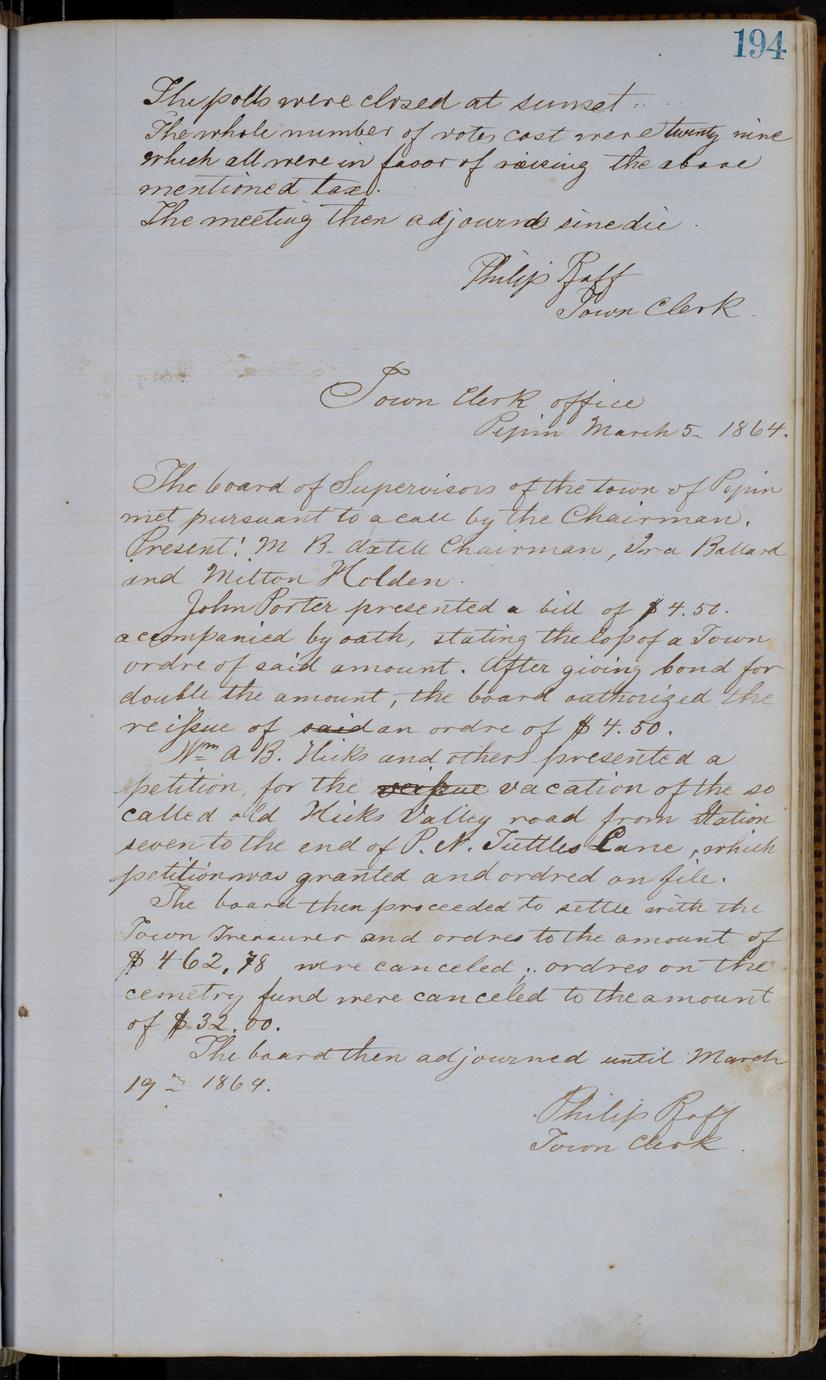 194
The polls were closed at sunset.
The whole number of votes cast were twenty nine
which all were in favor of raising the above
mentioned tax.
The meeting then adjournd sine die.
Philip Pfaff
Town Clerk.
Town Clerk office
Pepin March 5th 1864.
The board of Supervisors of the town of Pepin
met pursuant to a call by the Chairman.
Present: M B. Axtell Chairman, Ira Ballard
and Milton Holden.
John Porter presented a bill of $4.50.
accompanied by oath, stating the loss of a Town
ordre of said amount. After giving bond for
double the amount, the board authorized the
reissue of said an ordre of $4.50.
Wm A B. Hicks and others presented a
petition for the reissue vacation of the so
called old Hicks Valley road from Station
seven to the end of P. N. Tuttles Lane, which
petition was granted and ordred on file.
The board then proceeded to settle with the
Town Treasurer and ordres to the amount of
$462,78 were canceled; ordres on the
cemetry fund were canceled to the amount
of $32.00.
The board then adjourned until March
19th 1864.
Philip Pfaff
Town Clerk.